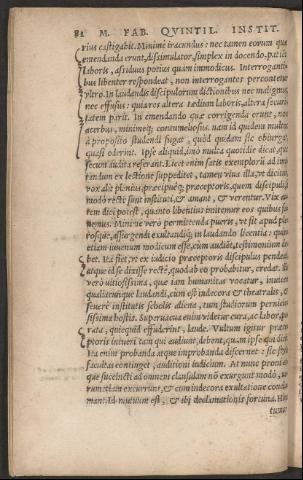 82 M. FAB. QVINTIL. INSTIT.
rius castigabit. Minimè iracundus: nec tamen eorum quæ
emendanda erunt, dissimulator, simplex in docendo, patiēs
laboris, assiduus potius quàm immodicus. Interrogantibus
bus libenter respondeat, non interrogantes percontetur
vltro. In laudandis discipulorum dictionibus nec malignus,
nec effusus: quia res altera tædium laboris, altera securi
tatem parit. In emendando quæ corrigenda erunt, non
acerbus, minimeq; contumeliosus. nam id quidem multos
à proposito studendi fugat, quòd quidam sic obiurgāt,
quasi oderint. Ipse aliquid, imò multa quotidie dicat, quæ
secum audita referant. Licèt enim satis exemplorū ad imi
tandum ex lectione suppeditet, tamen viua illa, vt dicitur,
vox alit plenius, præcipuéq; præceptoris, quem discipuli, si
modò rectè sunt instituti, & amant, & verentur. Vix au
tem dici potest, quanto libentius imitemur eos quibus fa
uemus. Minimè verò permittenda pueris, vt fit apud ple
rosque, assurgendi exultandíq; in laudando licentia: quin
etiam iuuenum modicum esse, cùm audiēt, testimonium de
bet. Ita fiet, vt ex iudicio præceptoris discipulus pendeat,
atque id se dixisse rectè, quod ab eo probabitur, credat. Il
la verò vitiosissima, quæ iam humanitas vocatur, inuicem
qualitercunque laudandi, cùm est indecora & theatralis, &
seuerè institutis scholis aliena, tum studiorum pernicio
sissima hostis. Superuacua enim videtur cura, ac labor, pa
rata, quicquid effuderint, laude. Vultum igitur præce
ptoris intueri tam qui audiunt, debent, quàm ipse qui dicit.
Ita enim probanda atque improbanda discernet: sic stylo
facultas continget, auditioni iudicium. At nunc proni at
que succincti ad omnem clausulam nō exurgunt modò, ve
rumetiam excurrunt, & cum indecora exultatione concla
mant. Id mutuum est, & ibi declamationis fortuna. Hinc
tumor